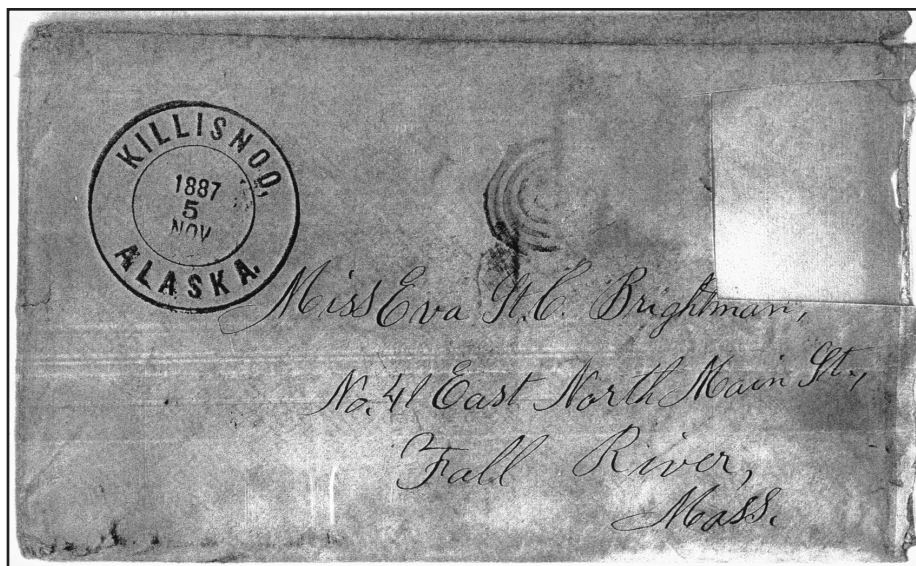 KILLISNOO,
1887
5
NOV
ALASKA.
Miss Eva St. C. Brightman,
No. 41 East North Main St.,
Fall River,
Mass.